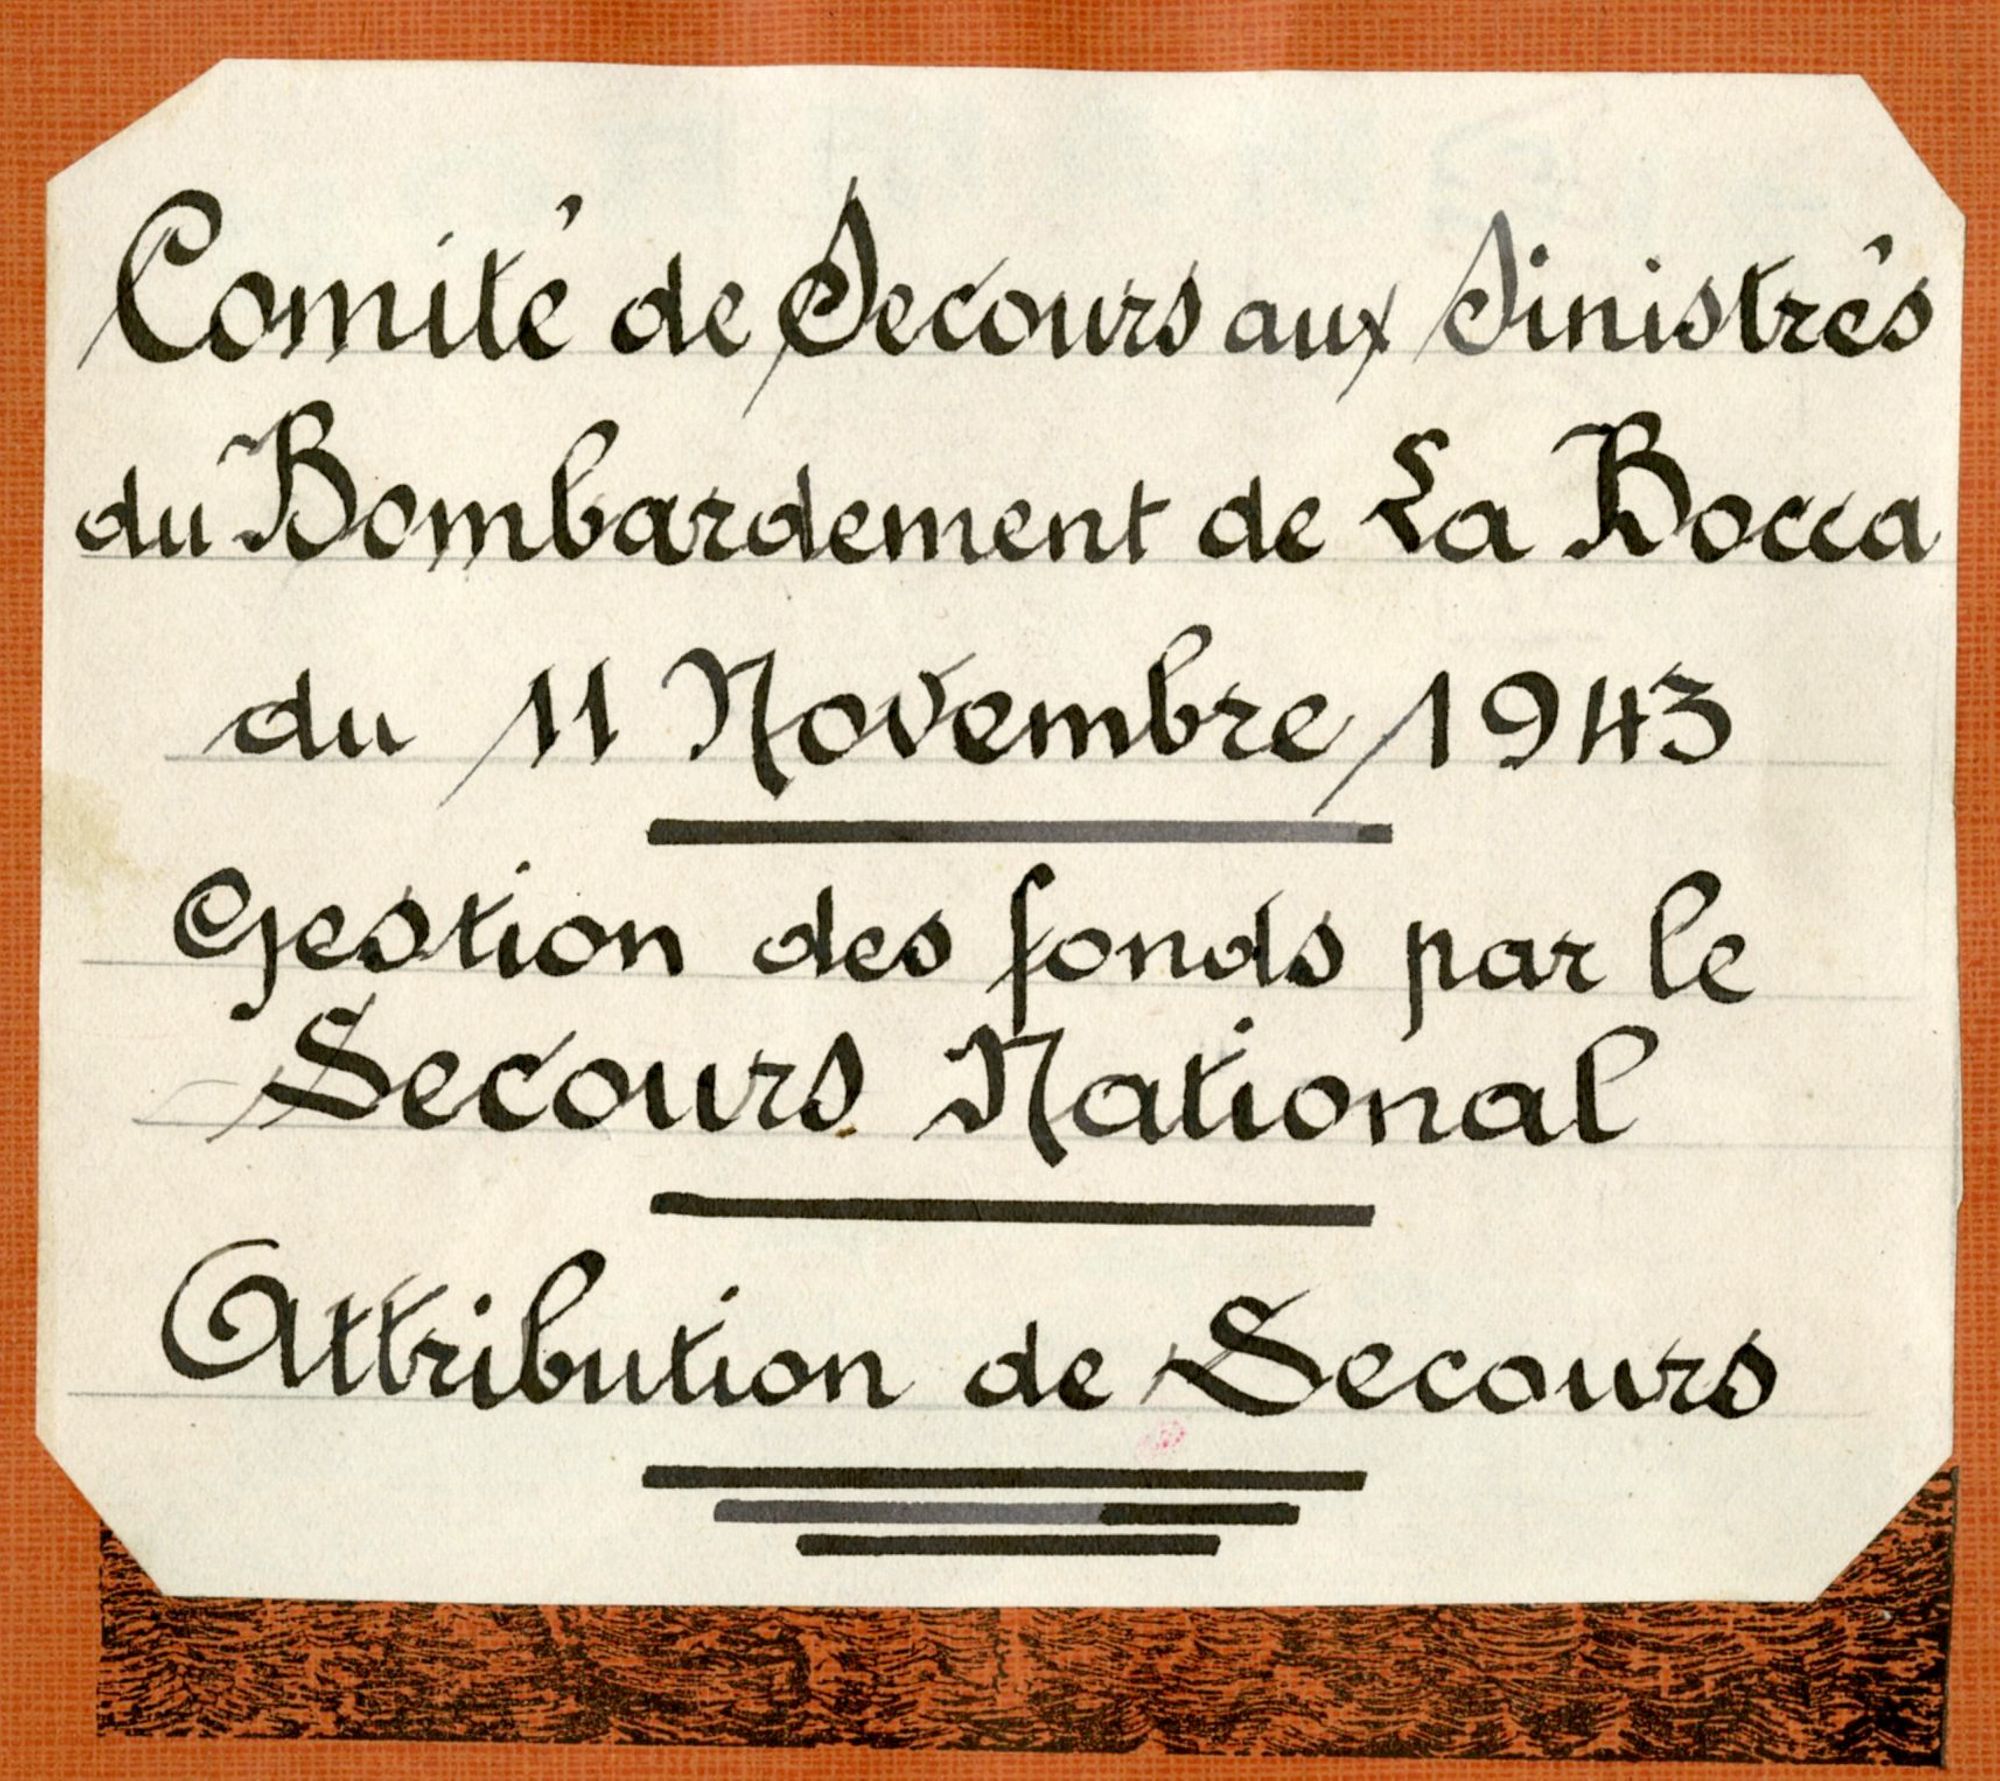 Comité de Secours aux Sinistrés
du Bombardement de La Bocca
du 11 Novembre 1943
Gestion des fonds par le
Secours National
Attribution de Secours